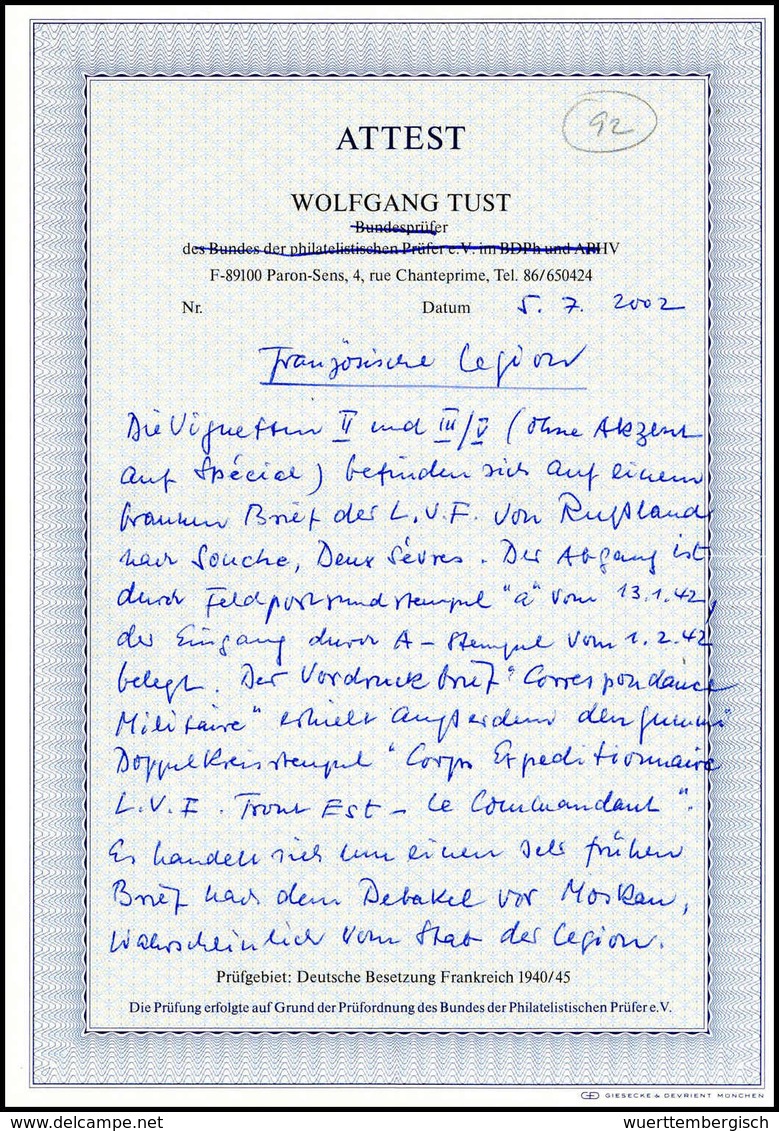 92
ATTEST
WOLFGANG TUST
Bundesprüfer
des Bundes der philatelistischen Prüfer e.V. im BDPh und APHV
F-89100 Paron-Sens, 4, rue Chanteprime, Tel. 86/650424
Nr. Datum 5. 7. 2002
Französische Legion
Die Vignetten II und III/V (ohne Akzent
auf Spécial) befinden sich auf einem
Brief der L.V.F. von Rußland
nach Souche, Deux Sèvres. Der Abgang ist
durch Feldpostrundstempel "a" vom 13.1.42,
der Eingang durch A-Stempel vom 1.2.42
belegt. Der Vordruckbrief "Correspondance
Militaire" erhielt außerdem den Gummi
Doppelkreisstempel "Corps Expeditionnaire
L.V.F. Front Est - Le Commandant".
Es handelt sich um einen sehr frühen
Brief nach dem Debakel vor Moskau,
wahrscheinlich vom Stab der Legion.
Prüfgebiet: Deutsche Besetzung Frankreich 1940/45
Die Prüfung erfolgte auf Grund der Prüfordnung des Bundes der Philatelistischen Prüfer e.V.
GIESECKE & DEVRIENT MÜNCHEN
wuerttembergisch